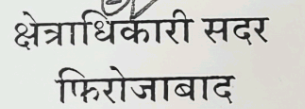 क्षेत्राधिकारी सदर
फिरोजाबाद